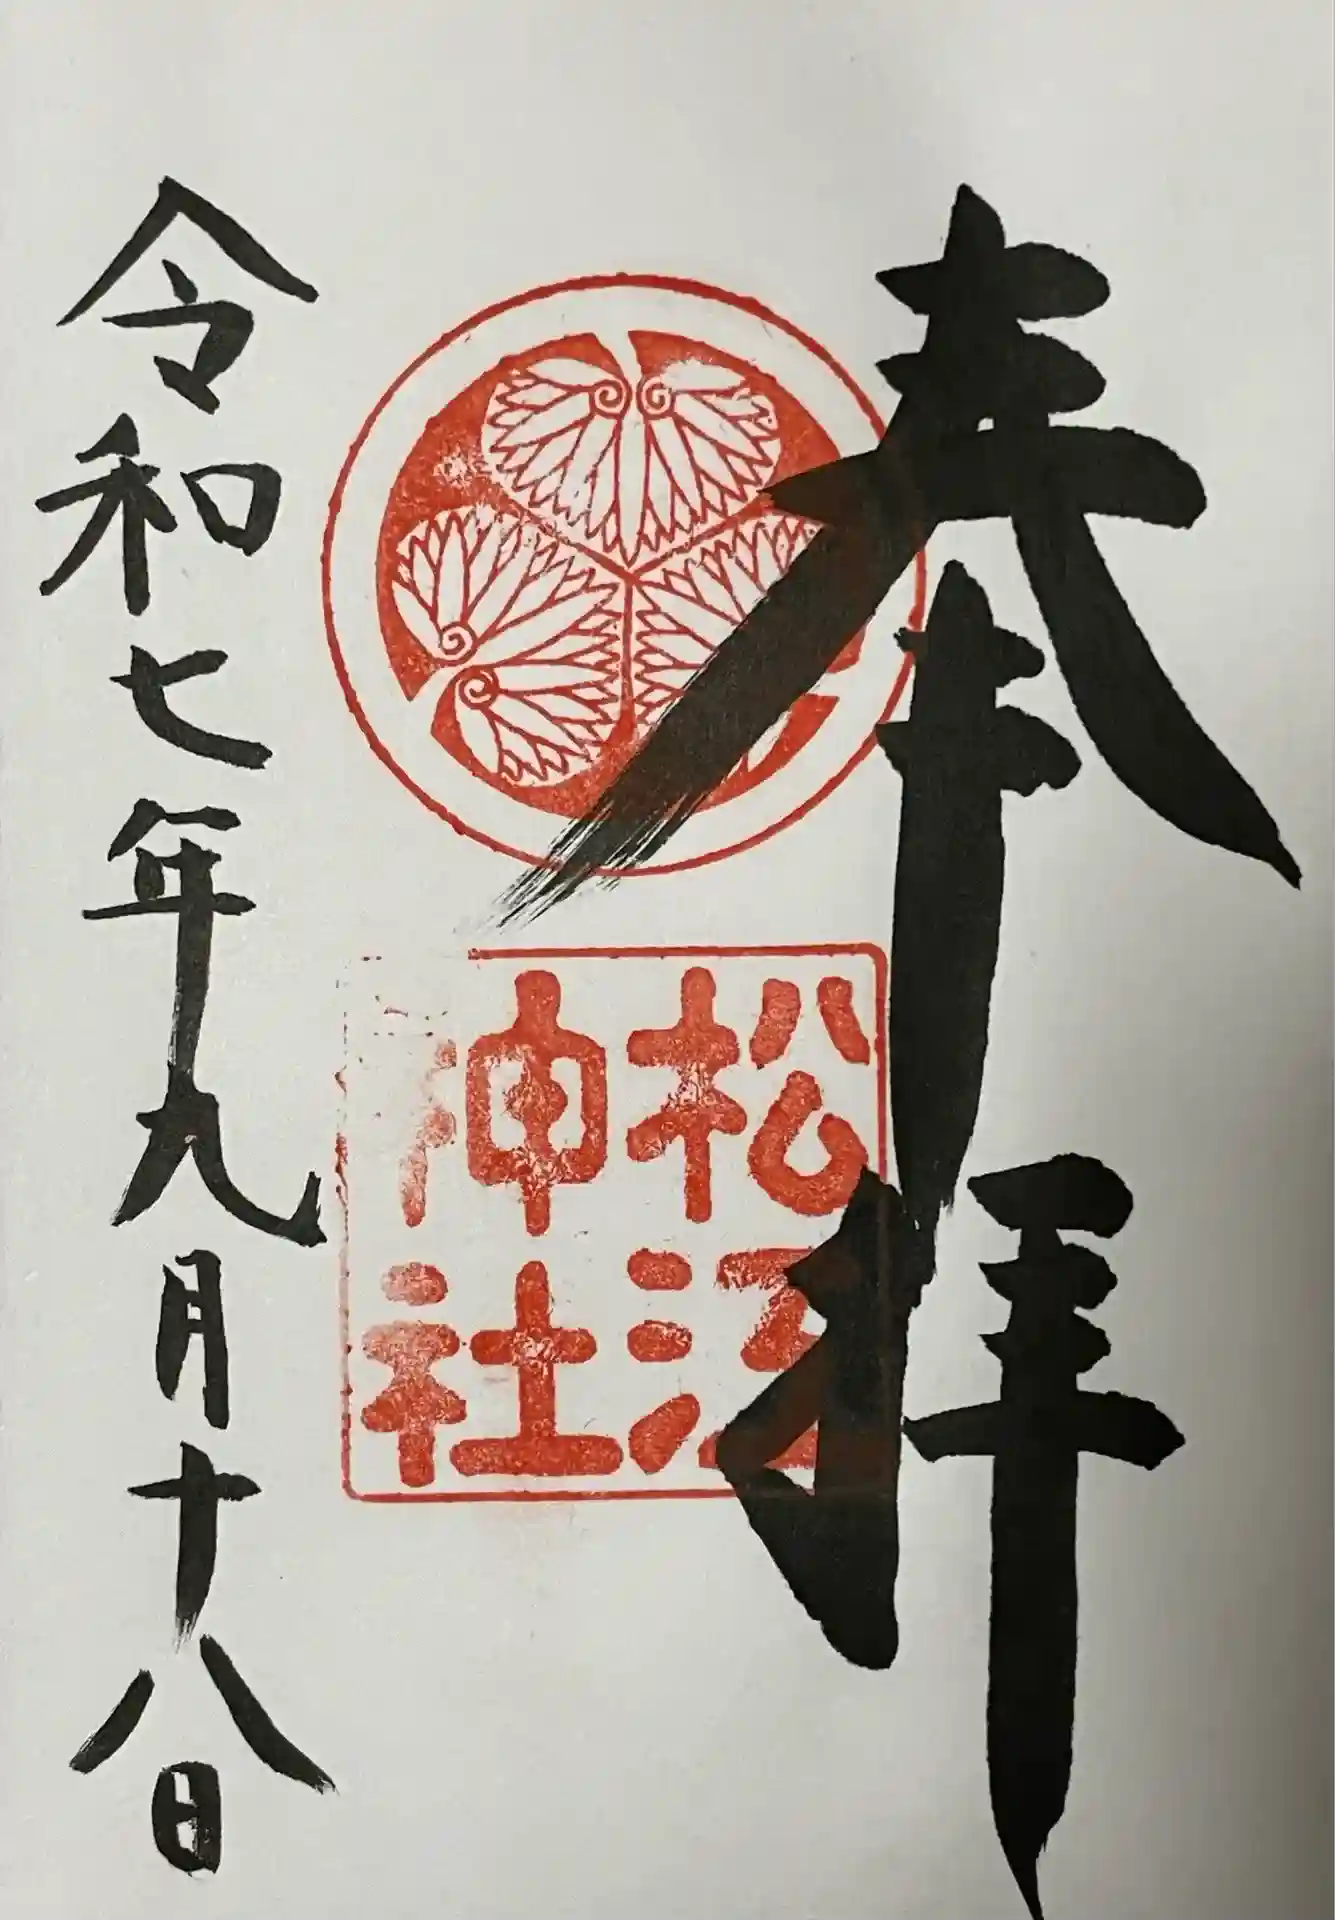 奉拝
松江
神社
令和七年九月十八日